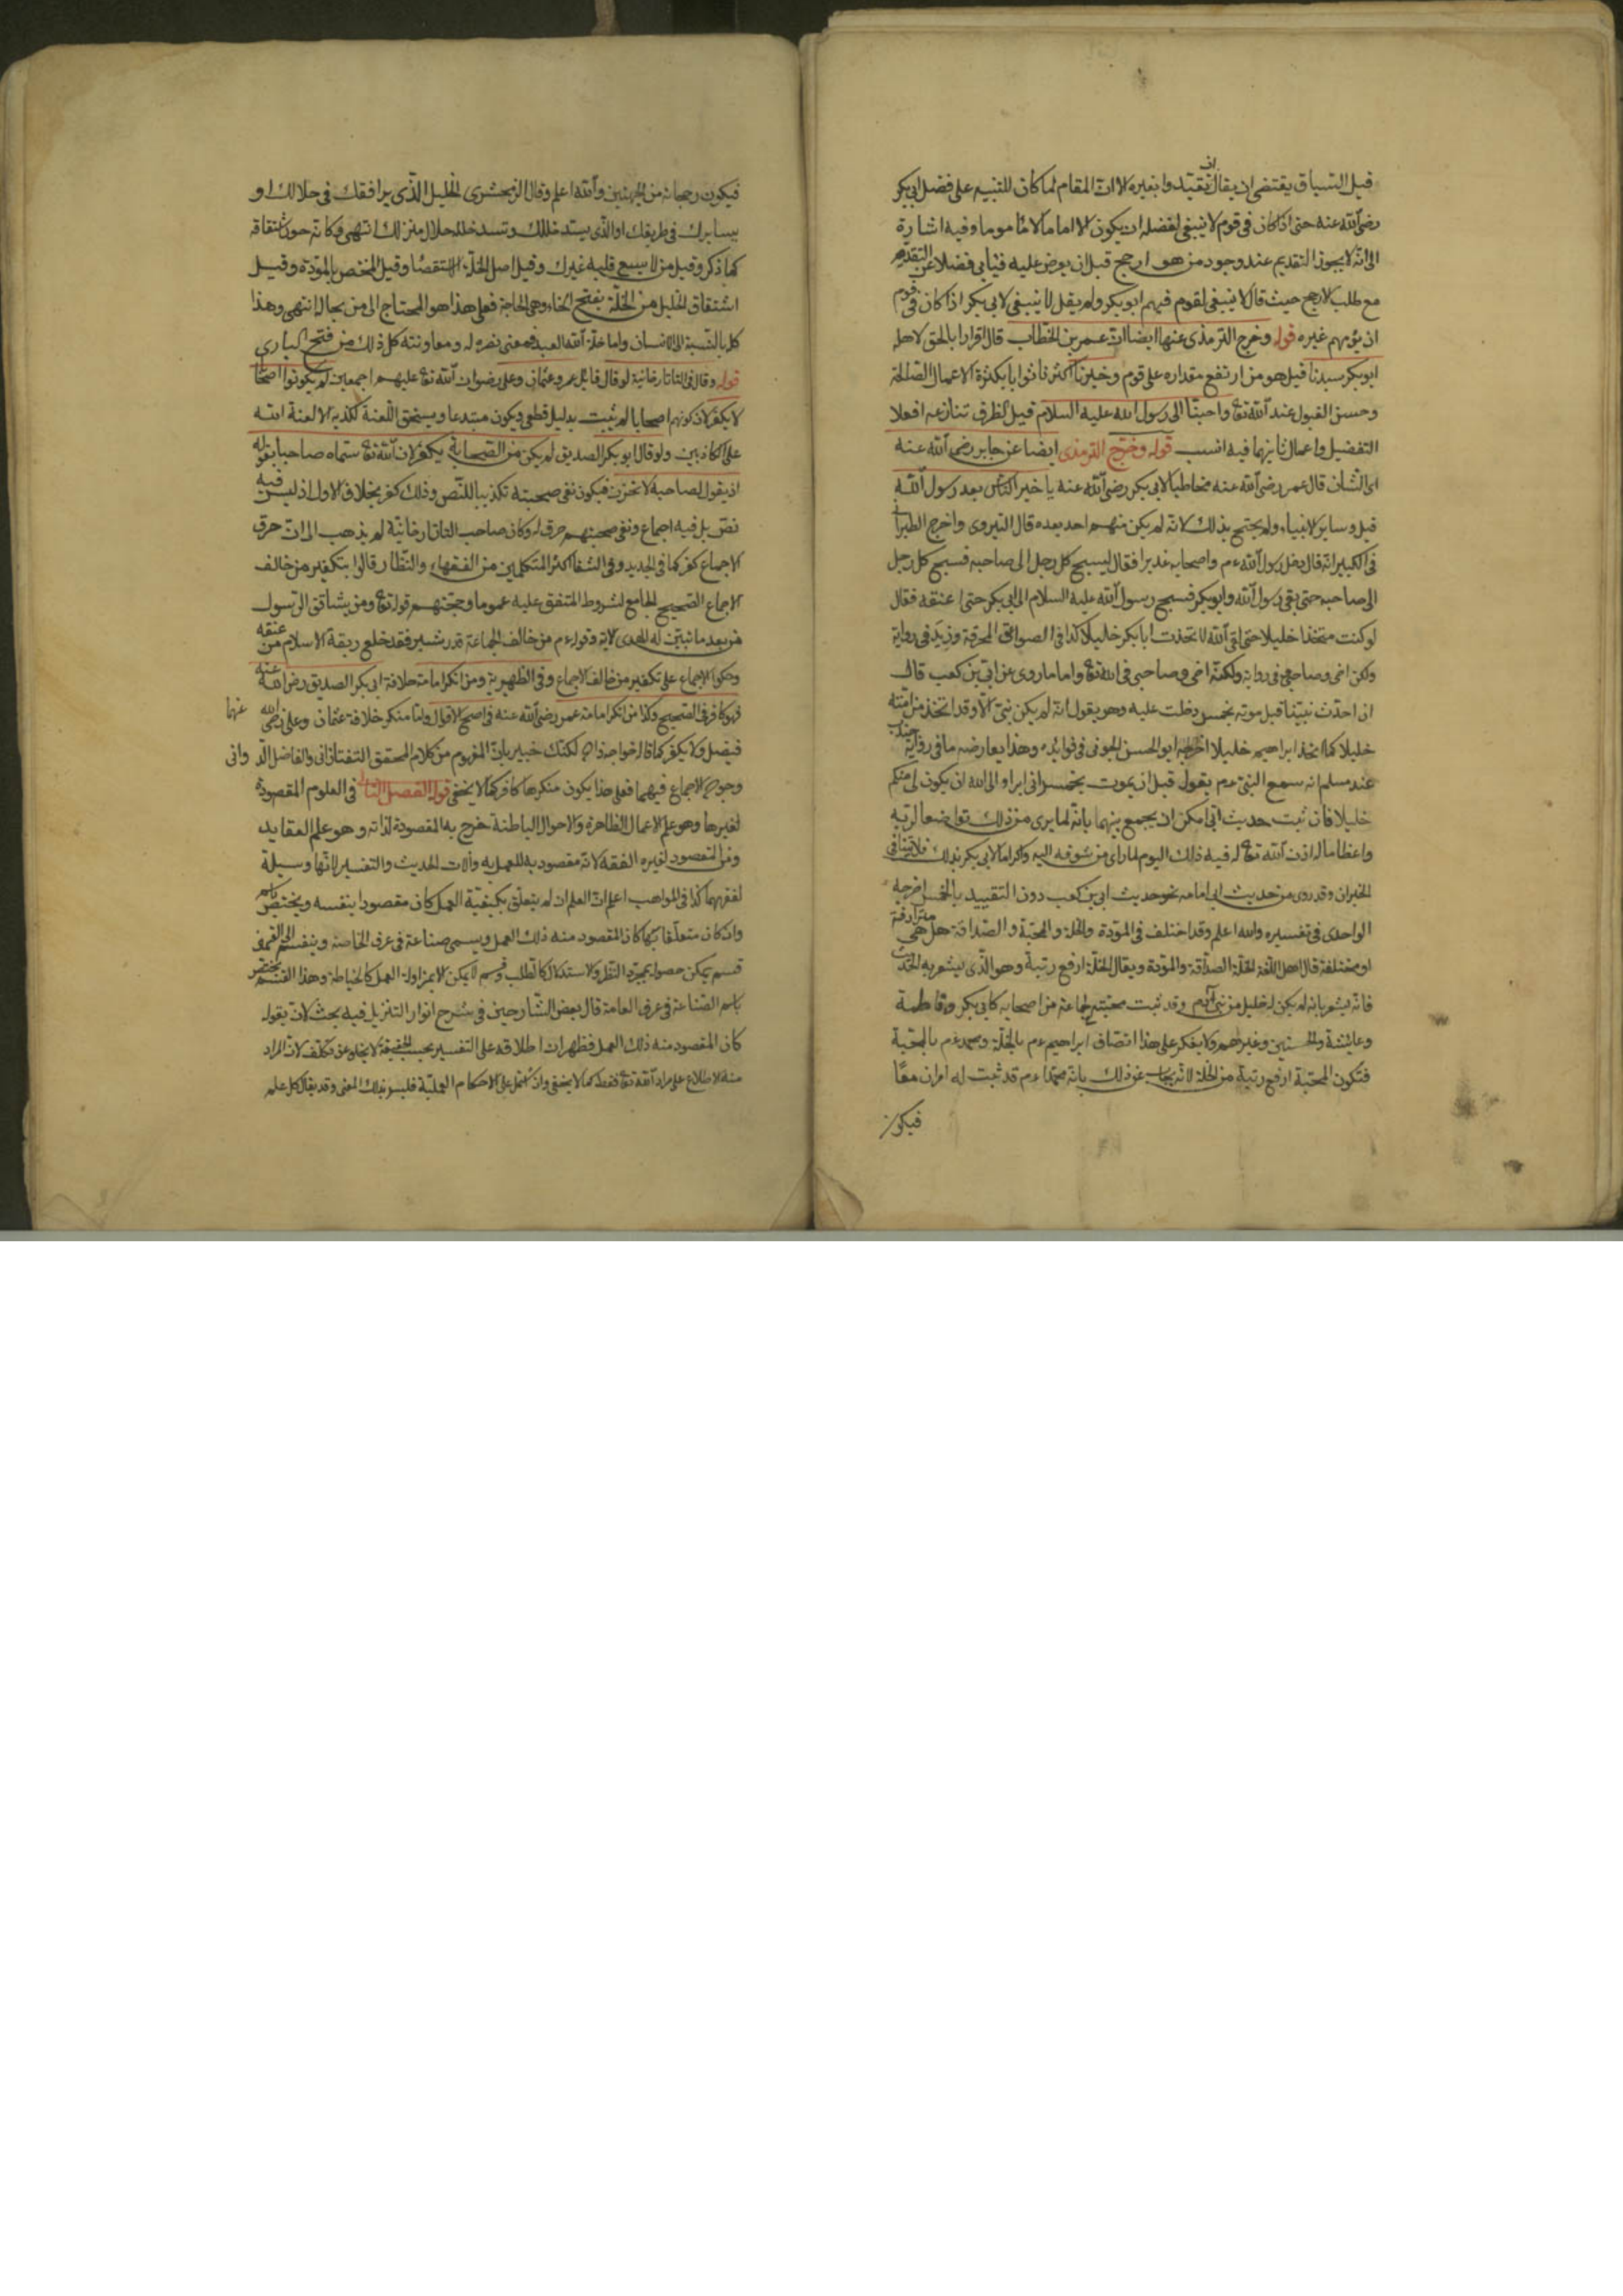 قيل السياق يقتضى ان يقال ان تقيد وا بغيره الا ان المقام لما كان للتنبيه على فضل ابى بكر
رضى الله عنه حتى اذا كان فى قوم لا ينبغى لفضله ان يكون الا اماما لا مأموما وفيه اشارة
الى انه لا يجوز التقديم عند وجود من هو ارجح قبل ان يعرض عليه فيأبى فضلا عن التقدم
مع طلب الارجح حيث قال لا ينبغى لقوم فيهم ابو بكر ولم يقل لا ينبغى لابى بكر اذا كان فى قوم
ان يؤمهم غيره قوله وخرج الترمذى عنها ايضا ان عمر بن الخطاب قال اقرارا بالحق لاهله
ابو بكر سيدنا قيل هو من ارتفع مقداره على قوم وخيرنا اكثرنا ثوابا بكثرة الاعمال الصالحة
وحسن القبول عند الله تعا واحبنا الى رسول الله عليه السلام قيل الظرف تنازعه افعلا
التفضيل واعمال ثانيهما فيه انسب قوله وخرج الترمذى ايضا عن جابر رضى الله عنه
اى الشان قال عمر رضى الله عنه مخاطبا لابى بكر رضى الله عنه يا خير الناس بعد رسول الله
قيل وساير الانبياء ولم يحتج بذلك لانه لم يكن منهم احد بعده قال النووى واخرج الطبرانى
فى الكبير انه قال دخل رسول الله ءم واصحابه غديرا فقال ليسبح كل رجل الى صاحبه فسبح كل رجل
الى صاحبه حتى بقى رسول الله وابو بكر فسبح رسول الله عليه السلام الى ابى بكر حتى اعتنقه فقال
لو كنت متخذا خليلا حتى القى الله لاتخذت ابا بكر خليلا كذا فى الصواعق المحرقة وزيد فى رواية
ولكن اخى وصاحبى وفى رواية ولكنه اخى وصاحبى فى الله تعا واما ما روى عن ابى بن كعب قال
ان احدث نبينا قبل موته بخمس دخلت عليه وهو يقول انه لم يكن نبى الا وقد اتخذ من امته
خليلا كما اتخذ ابراهيم خليلا اخرجه ابو الحسن الحوفى فى فوائده وهذا يعارضه ما فى رواية جندب
عند مسلم انه سمع النبى ءم يقول قبل ان يموت بخمس انى ابرأ الى الله ان يكون لى منكم
خليلا فان ثبت حديث ابى امكن ان يجمع بينهما بانه لما برى من ذلك تواضعا لربه
واعظاما له اذن الله تعا له فيه ذلك اليوم لما راى من شوقه اليه واكراما لابى بكر بذلك فلا يتنافى
الخبران وقد روى من حديث ابى امامة نحو حديث ابى بن كعب دون التقييد بالخمس اخرجه
الواحدى فى تفسيره والله اعلم وقد اختلف فى المودة والخلة والمحبة والصداقة هل هى مترادفة
او مختلفة قال اهل اللغة الخلة الصداقة والمودة ويقال الخلة ارفع رتبة وهو الذى يشعر به الحديث
فانه يشعر بانه لم يكن له خليل من بنى آدم وقد ثبت محبته لجماعة من اصحابه كابى بكر وفاطمة
وعايشة والحسنين وغيرهم ولا يعكر على هذا اتصاف ابراهيم ءم بالخلة ومحمد ءم بالمحبة
فتكون المحبة ارفع رتبة من الخلة لانه يجاب عن ذلك بانه محمدا ءم قد ثبت له امران معًا
فيكون
فيكون رجحانه من الجهتين والله اعلم وقال الزمخشرى الخليل الذى يرافقك فى خلالك او
يسايرك فى طريقك او الذى يسد خللك وتسد خلله خلال منزلك انتهى وكانه جوز اشتقاقه
كما ذكر وقيل من لا يسع قلبه غيرك وقيل اصل الخلة الاستقصا وقيل المختص بالمودة وقيل
اشتقاق الخليل من الخلة بفتح الخاء وهى الحاجة فعلى هذا هو المحتاج الى من يخاله انتهى وهذا
كله بالنسبة الى الانسان واما خلة الله العبد فبمعنى نصره له ومعاونته كل ذلك من فتح البارى
قوله وقال فى التاتارخانية لو قال قايل عمر وعثمان وعلى رضوان الله تعا عليهم اجمعين لم يكونوا اصحابا
لا يكفر لان كونهم اصحابا لم يثبت بدليل قطعى ويكون مبتدعا ويستحق اللعنة لكذبه الا لعنة الله
على الكاذبين ولو قال ابو بكر الصديق لم يكن من الصحابة يكفر لان الله تعا سماه صاحبا بقوله
اذ يقول لصاحبه لا تحزن فيكون نفى صحبته تكذيبا للنص وذلك كفر بخلاف الاول اذ ليس فيه
نص بل فيه اجماع ونفى صحبتهم خرق له وكان صاحب التاتارخانية لم يذهب الى ان خرق
الاجماع كفر كما فى الجديد وفى الشفا اكثر المتكلمين من الفقهاء والنظار قالوا بتكفير من خالف
الاجماع الصحيح الجامع لشروط المتفق عليه عموما وحجتهم قوله تعا ومن يشاقق الرسول
من بعد ما تبين له الهدى الاية وقوله ءم من خالف الجماعة قدر شبر فقد خلع ربقة الاسلام من عنقه
وحكوا الاجماع على تكفير من خالف الاجماع وفى الظهيرية ومن انكر امامة خلافة ابى بكر الصديق رضى الله عنه
فهو كافر فى الصحيح وكذا من انكر امامة عمر رضى الله عنه فى اصح الاقوال واما منكر خلافة عثمان وعلى رضى الله عنهما
فيضلل ولا يكفر كما قال خواجه زاده لكنك خبير بان المفهوم من كلام المحقق التفتازانى والفاضل الدوانى
وجود الاجماع فيهما فعلى هذا يكون منكرها كافر كما لا يخفى قوله الفصل الثانى فى العلوم المقصودة
لغيرها وهو علم الاعمال الظاهرة والاحوال الباطنة خرج به المقصودة لذاته وهو علم العقايد
وفى المقصود لغيره الفقه لانه مقصود به للعمل به وآلات الحديث والتفسير لانها وسيلة
لفقههما كذا فى المواهب اعلم ان العلم ان لم يتعلق بكيفية العمل كان مقصودا بنفسه ويختص باسم
وان كان متعلقا بها كان المقصود منه ذلك العمل ويسمى صناعة فى عرف الخاصة وينقسم الى قسمين
قسم يمكن حصوله بمجرد النظر والاستدلال كالطب وقسم لا يمكن الا بمزاولة العمل كالخياطة وهذا القسم يختص
باسم الصناعة فى عرف العامة قال بعض الشارحين فى شرح انوار التنزيل فيه بحث لان بقوله
كان المقصود منه ذلك العمل فظهر ان اطلاقه على التفسير بحسب الحقيقة لا يخلو عن تكلف لان المراد
منه الاطلاع على مراد الله تعا فقط كما لا يخفى وان اشتمل على الاحكام العملية فليس بذلك المعنى وقد يقال كل علم